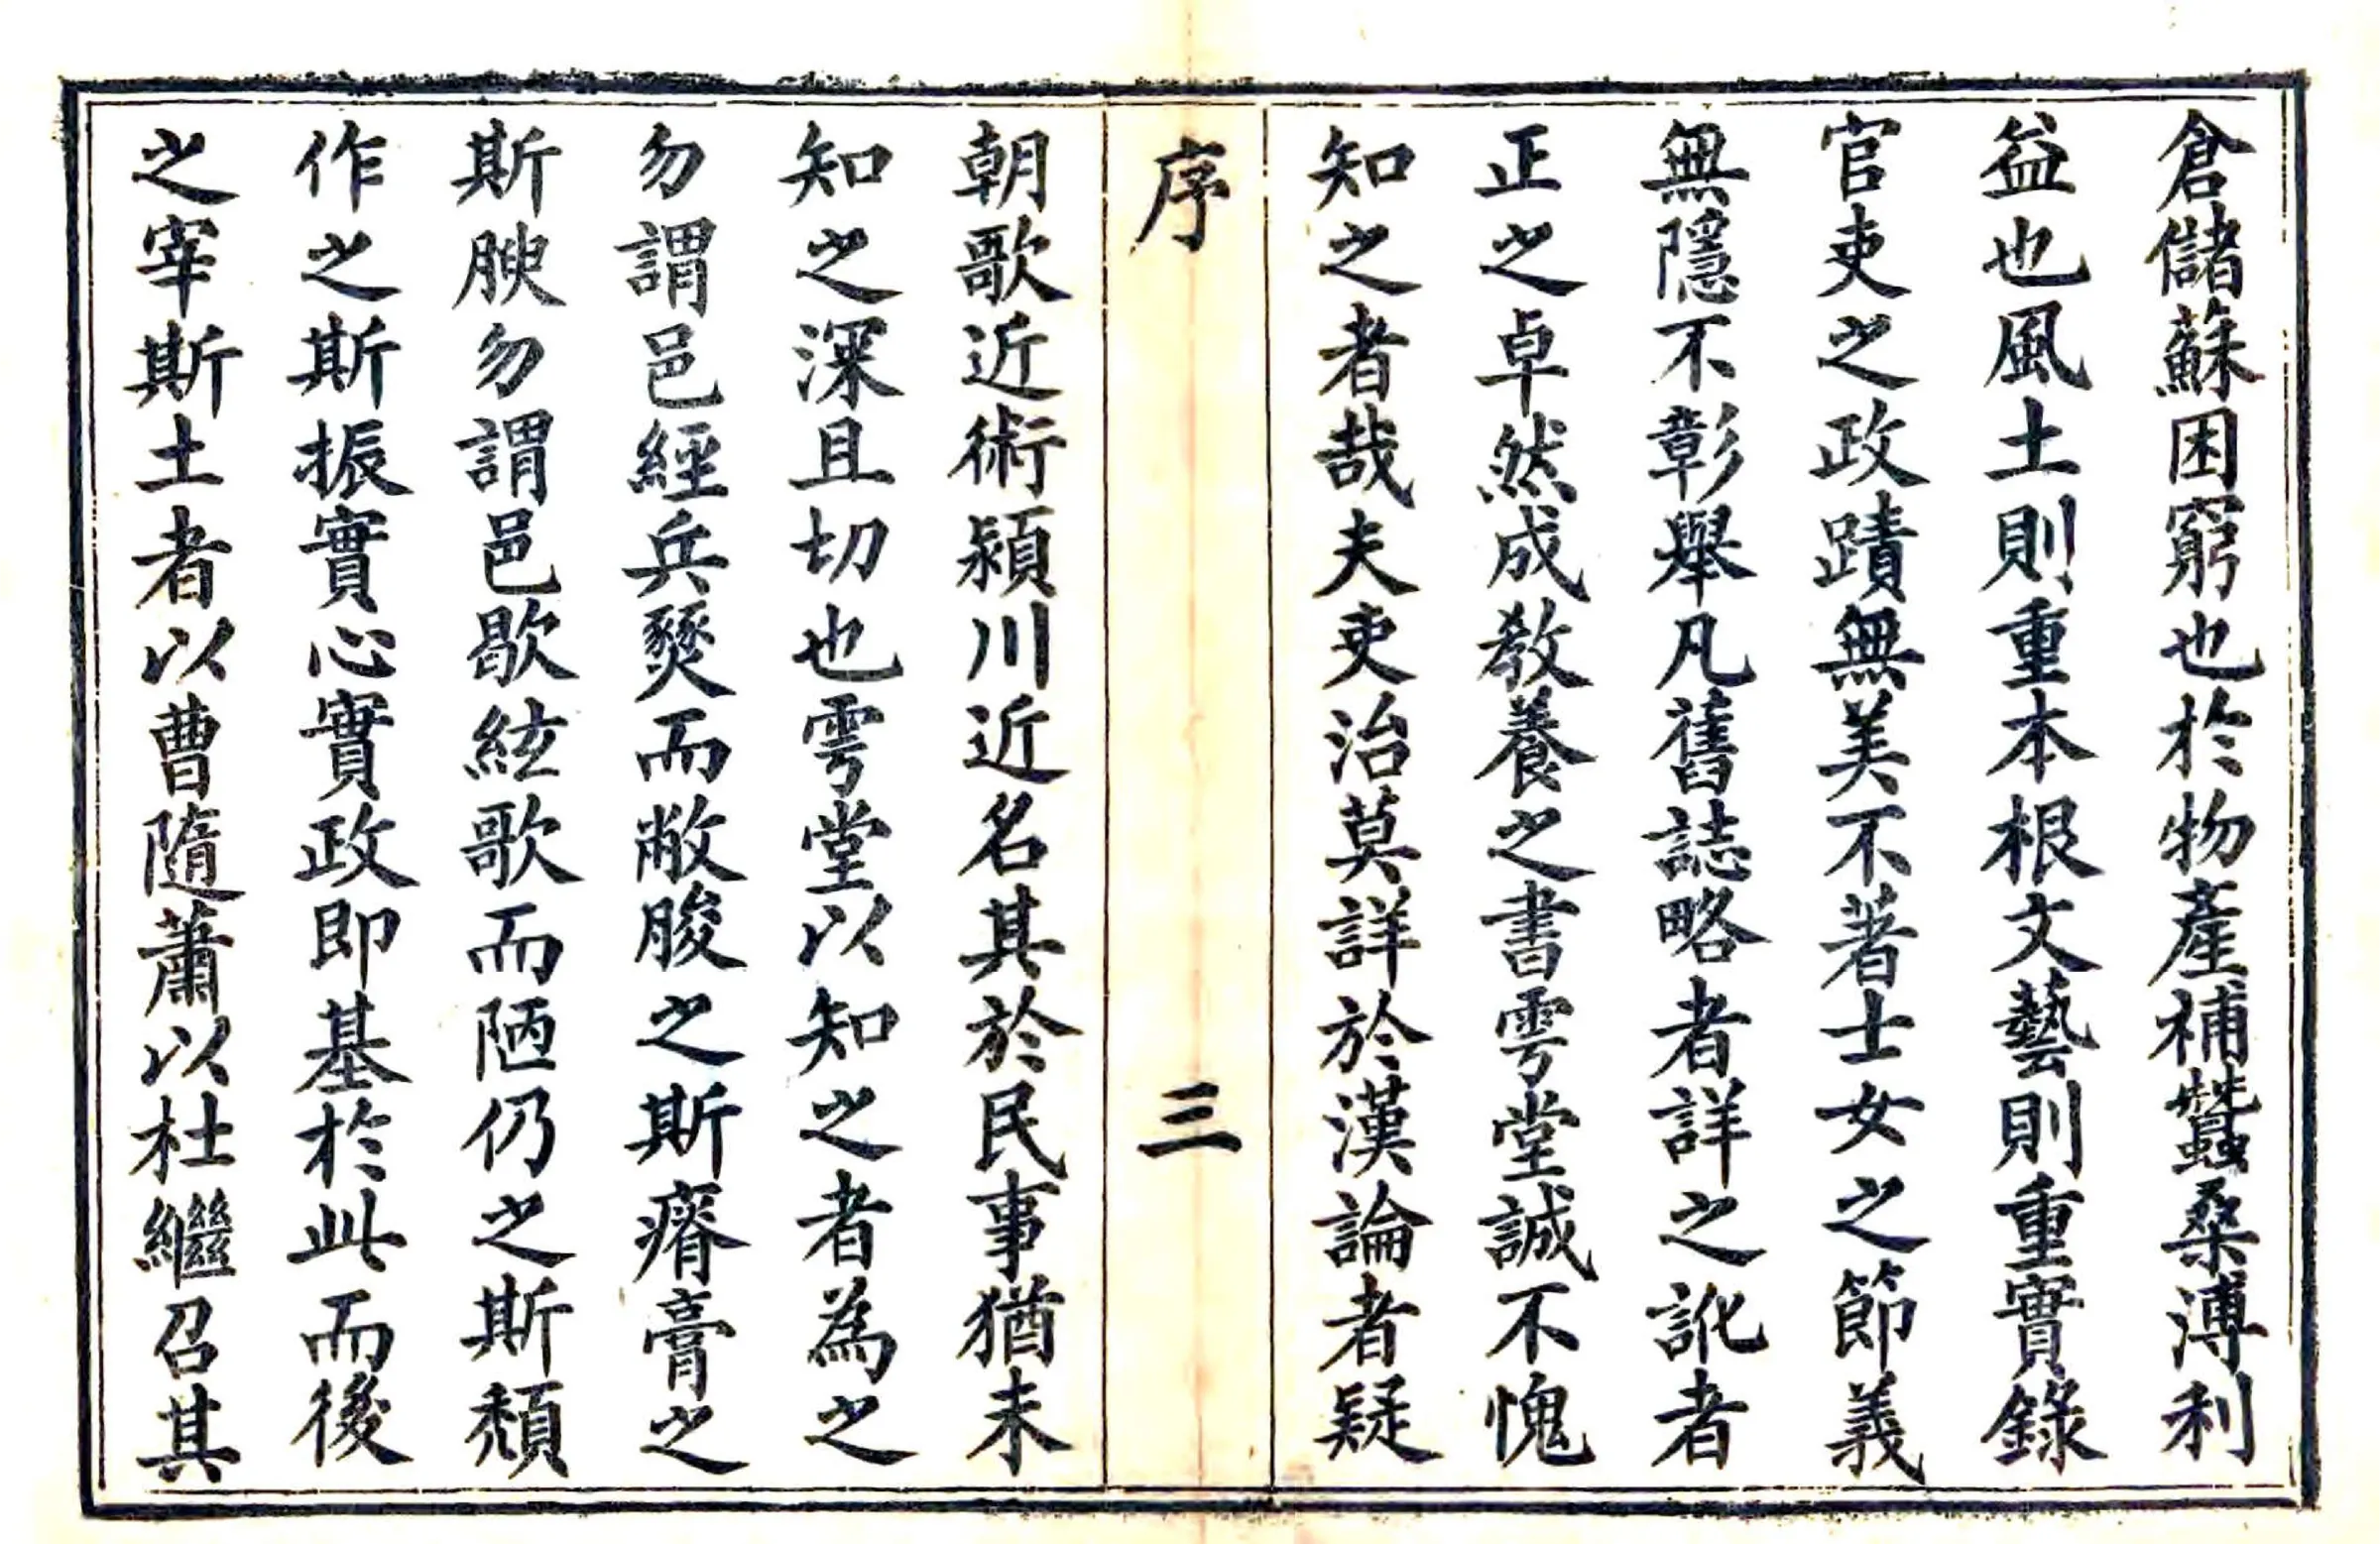 倉儲蘇困窮也於物產補蠶桑溥利
益也風土則重本根文藝則重實錄
官吏之政蹟無美不著士女之節義
無隱不彰舉凡舊誌略者詳之訛者
正之卓然成教養之書雩堂誠不愧
知之者哉夫吏治莫詳於漢論者疑
序 三
朝歌近術潁川近名其於民事猶未
知之深且切也雩堂以知之者為之
勿謂邑經兵燹而敝朘之斯瘠膏之
斯腴勿謂邑歇絃歌而陋仍之斯頹
作之斯振實心實政即基於此而後
之宰斯土者以曹隨蕭以杜繼召其